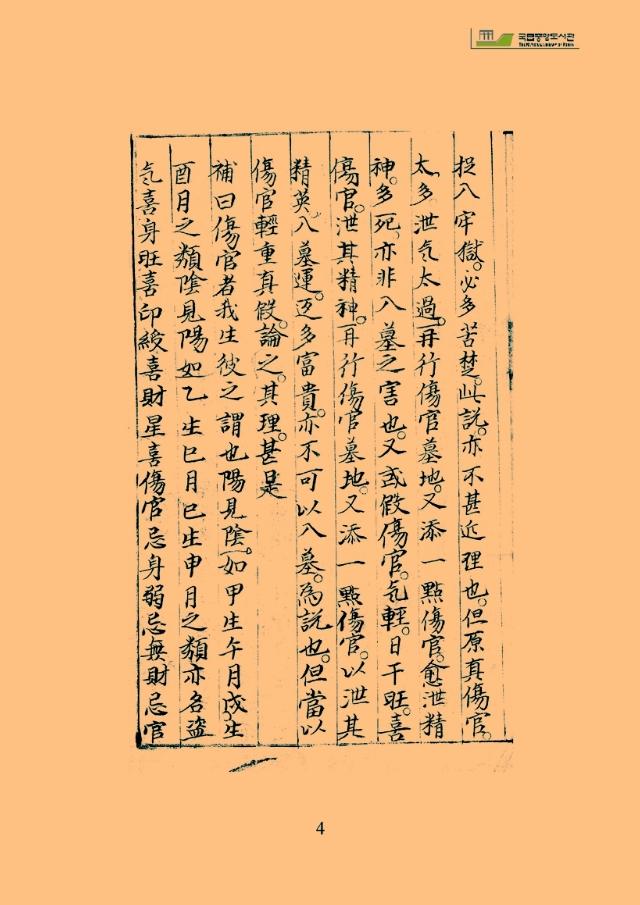 국립중앙도서관
THE NATIONAL LIBRARY OF KOREA
捉入牢獄。必多苦楚。此說。亦不甚近理也。但原真傷官。
太多泄气太過。再行傷官墓地。又添一點傷官。愈泄精
神。多死。亦非入墓之害也。又或假傷官。气輕。日干旺。喜
傷官。泄其精神。再行傷官墓地。又添一點傷官。以泄其
精英入墓運。迈多富貴。亦不可以入墓。為說也。但當以
傷官輕重真假。論之。其理。甚是
補曰傷官者我生彼之謂也陽見陰。如甲生午月戊生
酉月之類陰見陽如乙生巳月巳生申月之類亦名盜
气喜身旺喜印綬喜財星喜傷官忌身弱忌無財忌官
4